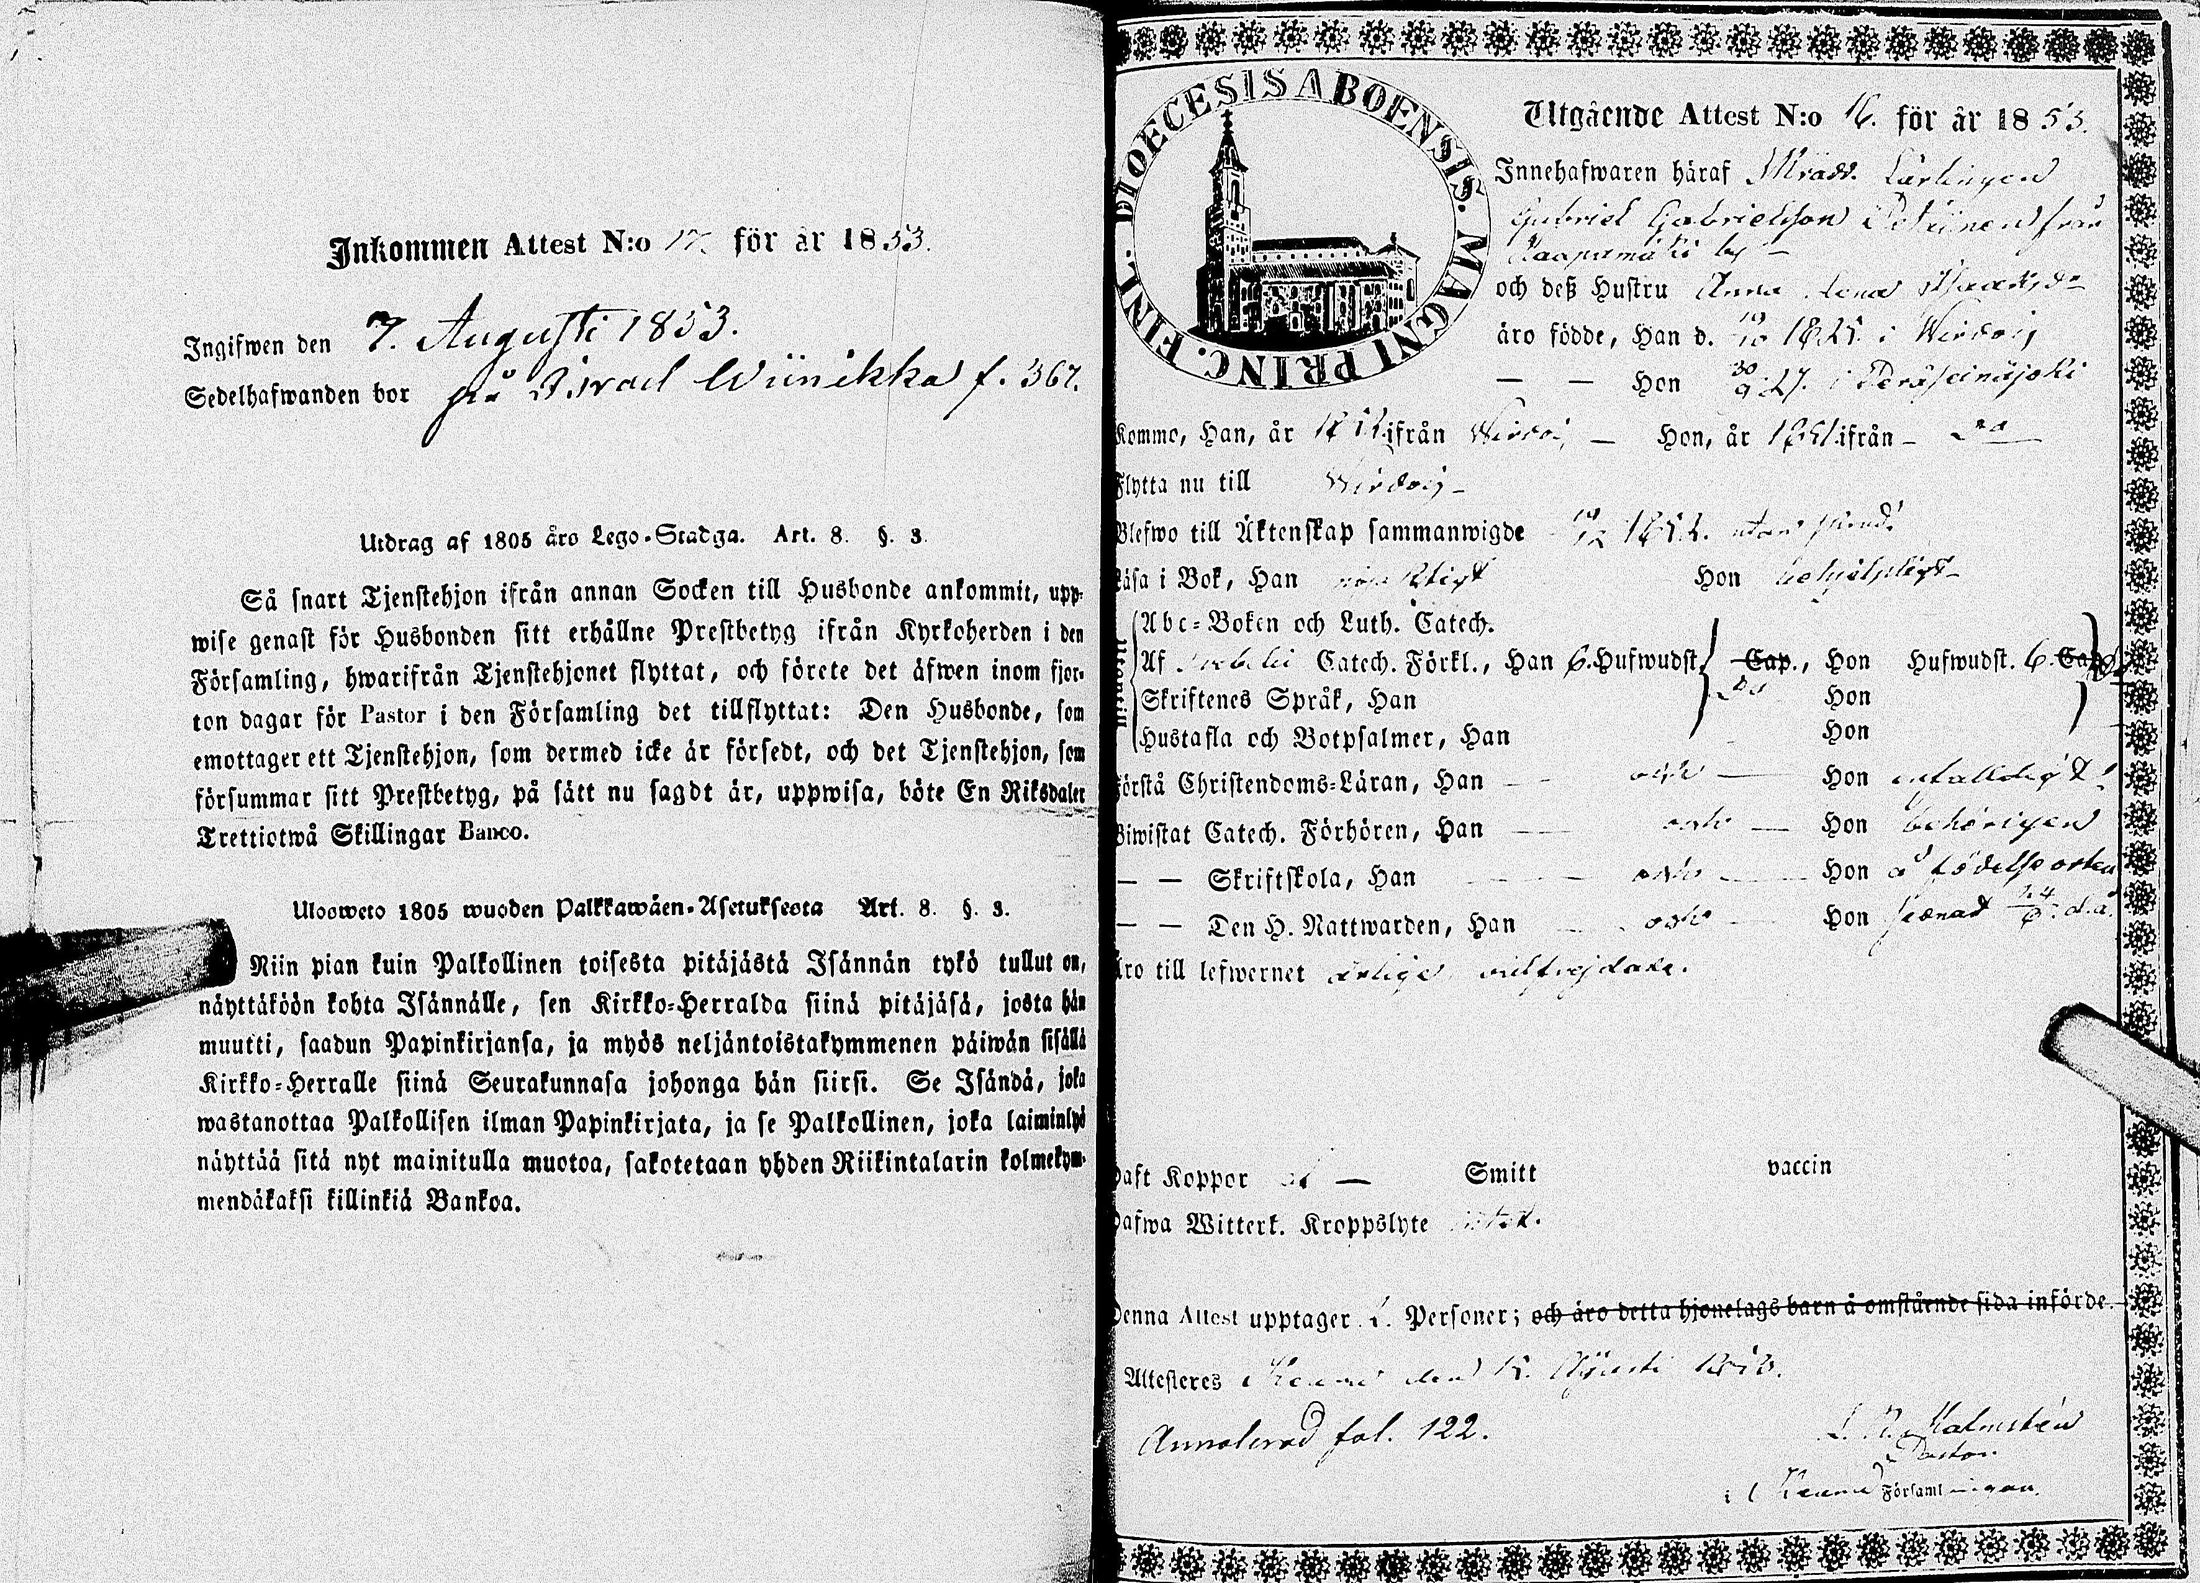 Inkommen Attest N:o 17. för år 1853.
Ingifwen den 7. Augusti 1853.
Sedelhafwanden bor på Israel Wiinikka f. 367.
Utdrag af 1805 års Lego-Stadga. Art. 8. §. 3.
Så snart Tjenstehjon ifrån annan Socken till Husbonde ankommit, upp-
wise genast för Husbonden sitt erhållne Prestbetyg ifrån Kyrkoherden i den
Församling, hwarifrån Tjenstehjonet flyttat, och förete det äfwen inom fjor-
ton dagar för Pastor i den Församling det tillflyttat: Den Husbonde, som
emottager ett Tjenstehjon, som dermed icke är försedt, och det Tjenstehjon, som
försummar sitt Prestbetyg, på sätt nu sagdt är, uppwisa, böte En Riksdaler
Trettiotwå Skillingar Banco.
Ulosweto 1805 wuoden Palkkawäen-Asetuksesta Art. 8. §. 3.
Niin pian kuin Palkollinen toisesta pitäjästä Isännän tykö tullut on,
näyttäköön kohta Isännälle, sen Kirkko-Herralda siinä pitäjäsä, josta hän
muutti, saadun Papinkirjansa, ja myös neljäntoistakymmenen päiwän sisällä
Kirkko-Herralle siinä Seurakunnasa johonga hän siirsi. Se Isändä, joka
wastanottaa Palkollisen ilman Papinkirjata, ja se Palkollinen, joka laiminlyö
näyttää sitä nyt mainitulla muotoa, sakotetaan yhden Riikintalarin kolmekym-
mendäkaksi killinkiä Bankoa.
DIOECESIS ABOENSIS. MAGNI PRINC. FINL.
Utgående Attest N:o 16. för år 1853.
Innehafwaren häraf Skrädd. Lärlingen
Gabriel Gabrielsson från
by
och deß Hustru Anna Lena
äro födde, Han d. 19/10 i Wirdois
— — Hon 30/9 27. i Peräseinäjoki
Kommo, Han, år ifrån Wirdois — Hon, år ifrån — do
Flytta nu till Wirdois
Blefwo till Äktenskap sammanwigde
Läsa i Bok, Han Hon behjelpligt
Abc-Boken och Luth. Catech.
Af Svebelii Catech. Förkl., Han 6. Hufwudst. Cap., Hon Hufwudst. 6. Cap.
Skriftenes Språk, Han Hon
Hustafla och Botpsalmer, Han Hon
Förstå Christendoms-Läran, Han — och — Hon enfaldigt
Biwistat Catech. Förhören, Han — och — Hon behörigen
— — Skriftskola, Han — och — Hon å födelse orten
— — Den H. Nattwarden, Han — och — Hon d. å.
Äro till lefwernet ärlige, välfrejdade.
Haft Koppor Smitt vaccin
Hafwa Witterl. Kroppslyte
Denna Attest upptager 2. Personer; och äro detta hjonelags barn å omstående sida införde.
Attesteres i Keuru den Augusti 1853.
Annoterad fol. 122.
Malmstén
Pastor
i Keuru Församlingen.